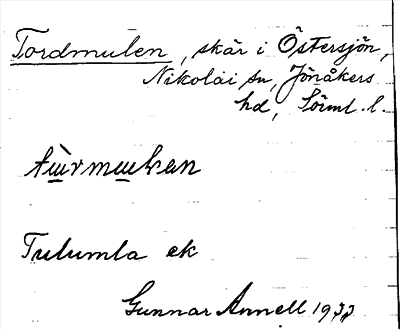 Tordmulen, skär i Östersjön,
Nikolai sn, Jönåkers
hd, Söml. l.
tɯ̀rmɯlɐn
Tulumla ek
Gunnar Annell 1933